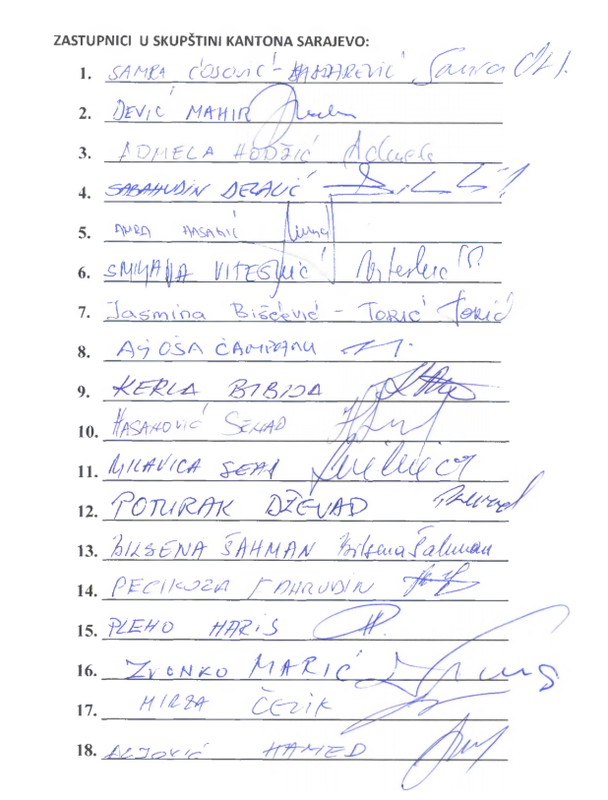 ZASTUPNICI U SKUPŠTINI KANTONA SARAJEVO:
1. SAMRA ĆOSOVIĆ-HAJDAREVIĆ
2. DEVIĆ MAHIR
3. ADMELA HODŽIĆ
4. SABAHUDIN DELALIĆ
5. AMRA HASAGIĆ
6. SMILJANA VITEŠKIĆ
7. Jasmina Bišćević - TORIĆ Torić
8. AJOŠA ČAMPARA
9. KERLA BIBIJA
10. HASANOVIĆ SENAD
11. MILAVICA SEAD
12. POTURAK DŽEVAD
13. BILSENA ŠAHMAN Bilsena Šahman
14. PECIKOZA FAHRUDIN
15. PLEHO HARIS
16. ZVONKO MARIĆ
17. MIRZA ČELIK
18. ALJOVIĆ HAMED